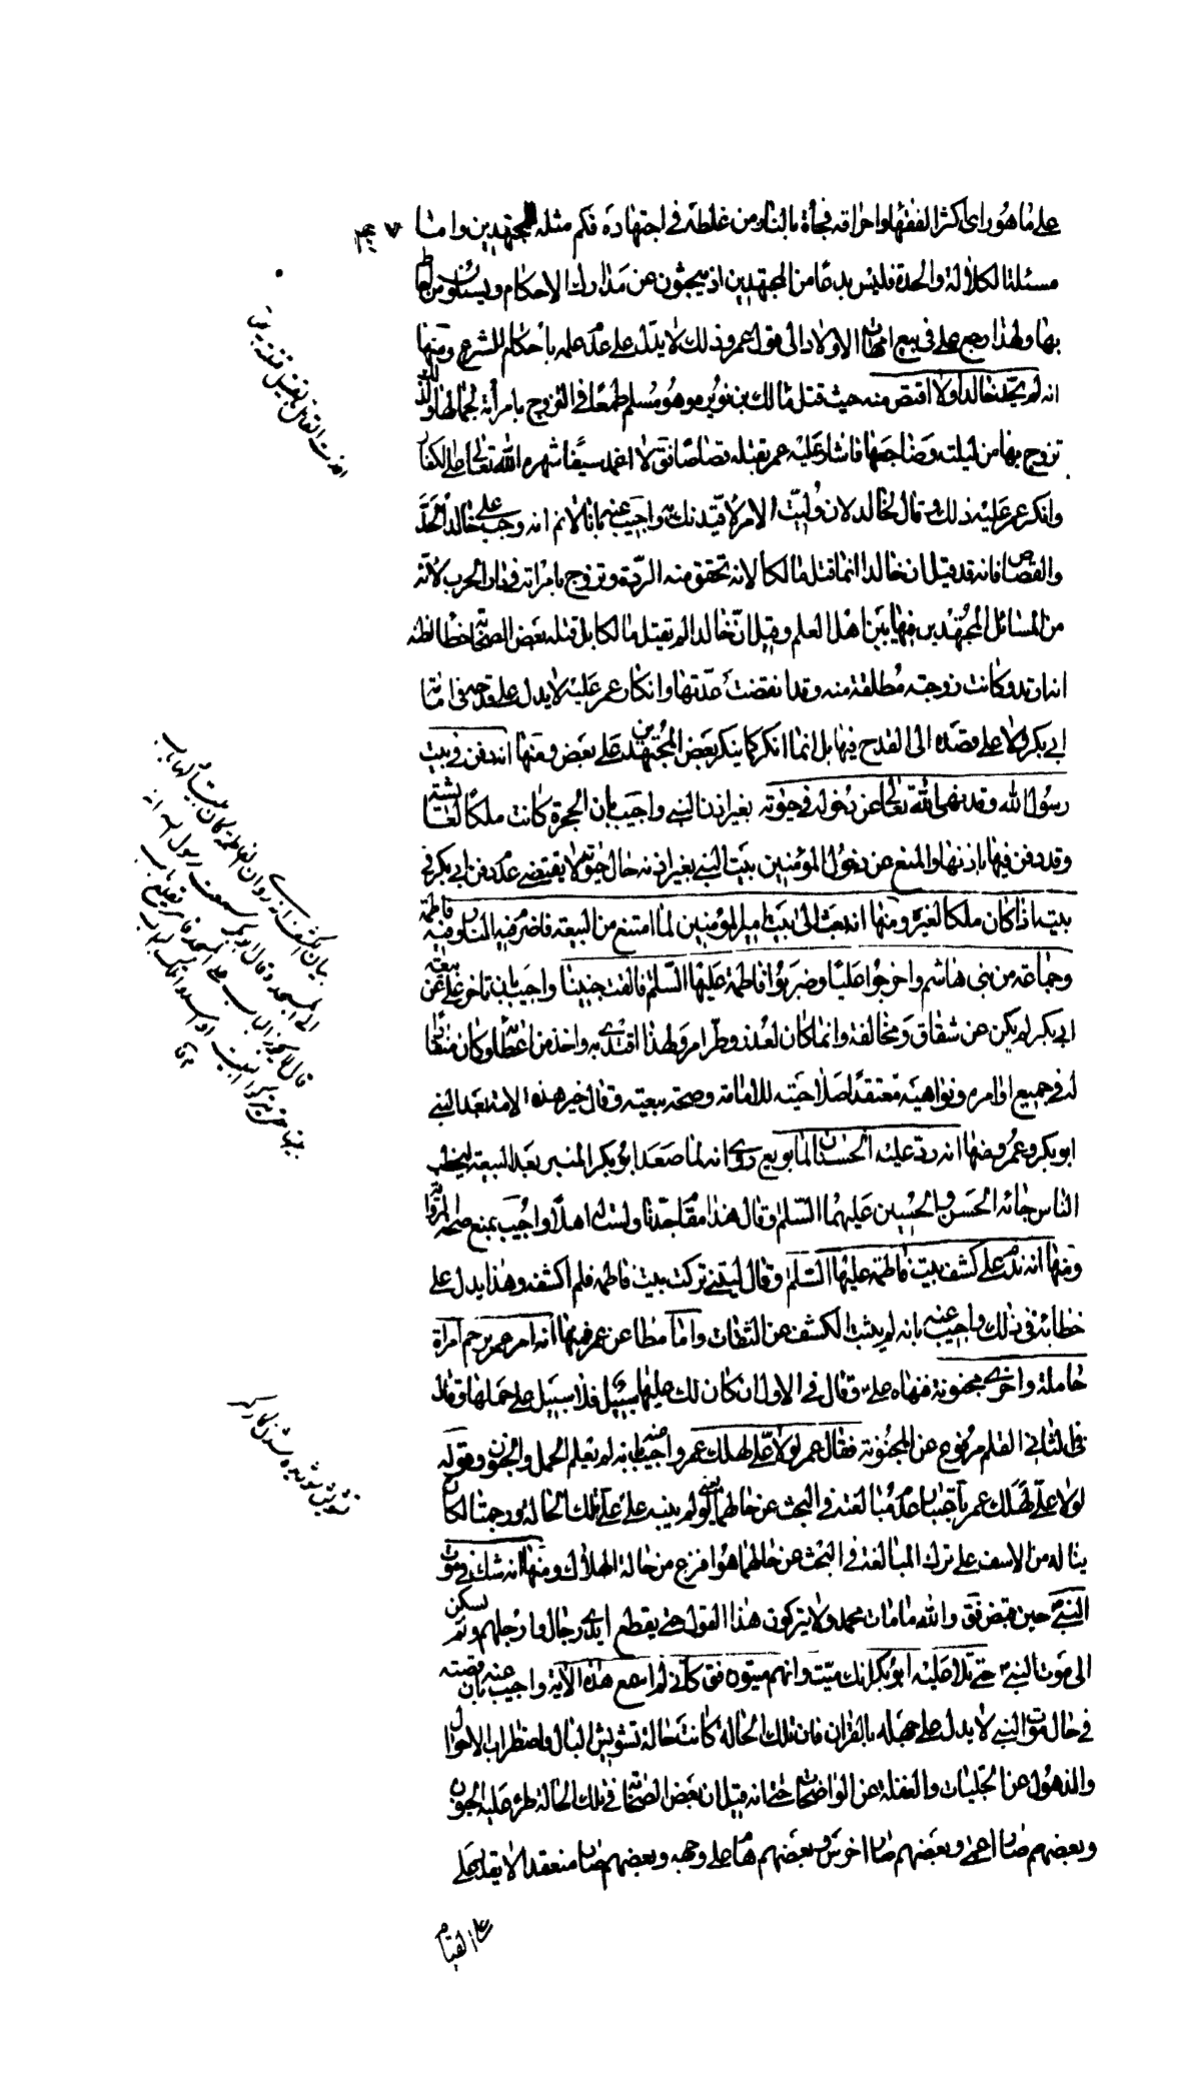 على ما هو راى اكثر الفقهاء واحراقه فجأة بالنار من غلطه في اجتهاده فكم مثله للمجتهدين واما
مسئلة الكلالة والجدة فليس بدعا من المجتهدين اذ يبحثون عن مدارك الاحكام ويسئلون من احاط
بها ولهذا رجع علي في بيع امهات الاولاد الى قول عمر وذلك لا يدل على عدم علمه باحكام الشرع ومنها
انه لم يحد خالدا ولا اقتص منه حيث قتل مالك بن نويره وهو مسلم طمعا في التزوج بامرأته لجمالها ولذلك
تزوج بها من ليلته وضاجعها فاشار عليه عمر بقتله قصاصا فق لا اغمد سيفا شهره الله تعالى على الكفار
وانكر عمر عليه ذلك وقال لخالد لان وليت الامر لاقيدنك به واجيب عنه بانا لانم انه وجب على خالد الحد
والقصاص فانه قد قيل ان خالدا انما قتل مالكا لانه تحقق منه الردة وتزوج بامراته في دار الحرب لانه
من المسائل المجتهدين فيها بين اهل العلم وقيل ان خالدا لم يقتل مالكا بل قتله بعض الصحابة خطأ لظنه
انه ارتد وكانت زوجته مطلقة منه وقد انقضت عدتها وانكار عمر عليه لا يدل على قدحه في امامة
ابي بكر ولا على قصده الى القدح فيها بل انما انكر كما ينكر بعض المجتهدين على بعض ومنها انه دفن في بيت
رسول الله وقد نهى الله تعالى عن دخوله في حيوته بغير اذن النبي واجيب بان الحجرة كانت ملكا لعائشة
وقد دفن فيها باذنها والمنع عن دخول المؤمنين بيت النبي بغير اذنه حال حيوته لا يقتضي عدم دفن ابي بكر في
بيته اذا كان ملكا لغيره ومنها انه بعث الى بيت امير المؤمنين لما امتنع من البيعة فاضرم فيه النار وفيه فاطمة
وجماعة من بني هاشم واخرجوا عليا وضربوا فاطمة عليها السلم فالقت جنينا واجيب بان تاخر علي عن بيعة
ابي بكر لم يكن عن شقاق ومخالفة وانما كان لعذر وطرا امر ولهذا اقتدى به واخذ من عطائه وكان منقادا
له في جميع اوامره ونواهيه معتقدا صلاحيته للامامة وصحة بيعته وقال خير هذه الامة بعد النبي
ابو بكر وعمر ومنها انه رد عليه الحسنان لما بويع روى انه لما صعد ابو بكر المنبر بعد البيعة ليخطب
الناس جائه الحسن والحسين عليهما السلم وقال هذا مقام جدنا ولست له اهلا واجيب بمنع صحة الرواية
ومنها انه ندم على كشف بيت فاطمة عليها السلم وقال ليتني تركت بيت فاطمة فلم اكشفه وهذا يدل على
خطائه في ذلك واجيب عنه بانه لم يثبت الكشف عن الثقات واما مطاعن عمر فمنها انه امر عمر برجم امرأة
حاملة واخرى مجنونة فنهاه علي وقال في الاول ان كان لك عليها سبيل فلا سبيل على حملها وقال
في الثاني القلم مرفوع عن المجنونة فقال عمر لولا علي لهلك عمر واجيب عنه بانه لم يعلم الحمل والجنون وقوله
لولا علي لهلك عمر باعتبار عدم مبالغته في البحث عن حالهما يعني لو لم ينبه علي على تلك الحالة ورجمتا لكان
يناله من الاسف على ترك المبالغة في البحث عن حالهما هو افزع من حالة الهلاك ومنها انه شك في موت
النبي حين قبض فق والله ما مات محمد ولا يتركون هذا القول حتى يقطع ايدي رجال وارجلهم ولم يسكن
الى موت النبي حتى تلا عليه ابو بكر انك ميت وانهم ميتون فق كأني لم اسمع هذه الاية واجيب عنه بان قصته
في حال موت النبي لا يدل على جهله بالقران فان تلك الحالة كانت حالة تشويش البال واضطراب الاحوال
والذهول عن الجليات والغفلة عن الواضحات حتى انه قيل ان بعض الصحابة في تلك الحالة طرء عليه الجنون
وبعضهم صار اعمى وبعضهم صار اخرس وبعضهم هام على وجهه وبعضهم صار مقعدا لا يقدر على
على القيام